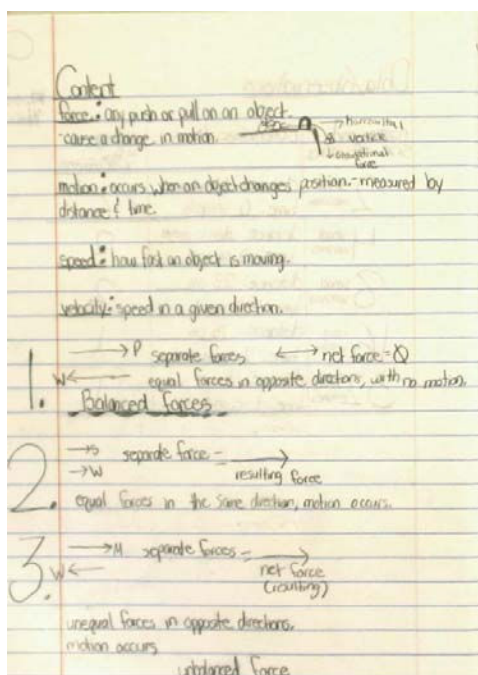 Content
force: any push or pull on an object.
-cause a change in motion.
horizontal
& vertical
force
motion: occurs when an object changes position.-measured by
distance & time.
speed: how fast an object is moving.
velocity: speed in a given direction.
1. → P separate forces ↔ net force = Ø
W ← equal forces in opposite directions, with no motion.
Balanced forces
2. → S separate force - →
→ W resulting force
equal forces in the same direction, motion occurs.
3. → M separate forces - →
W ← net force
(resulting)
unequal forces in opposite directions.
motion occurs
unbalanced force